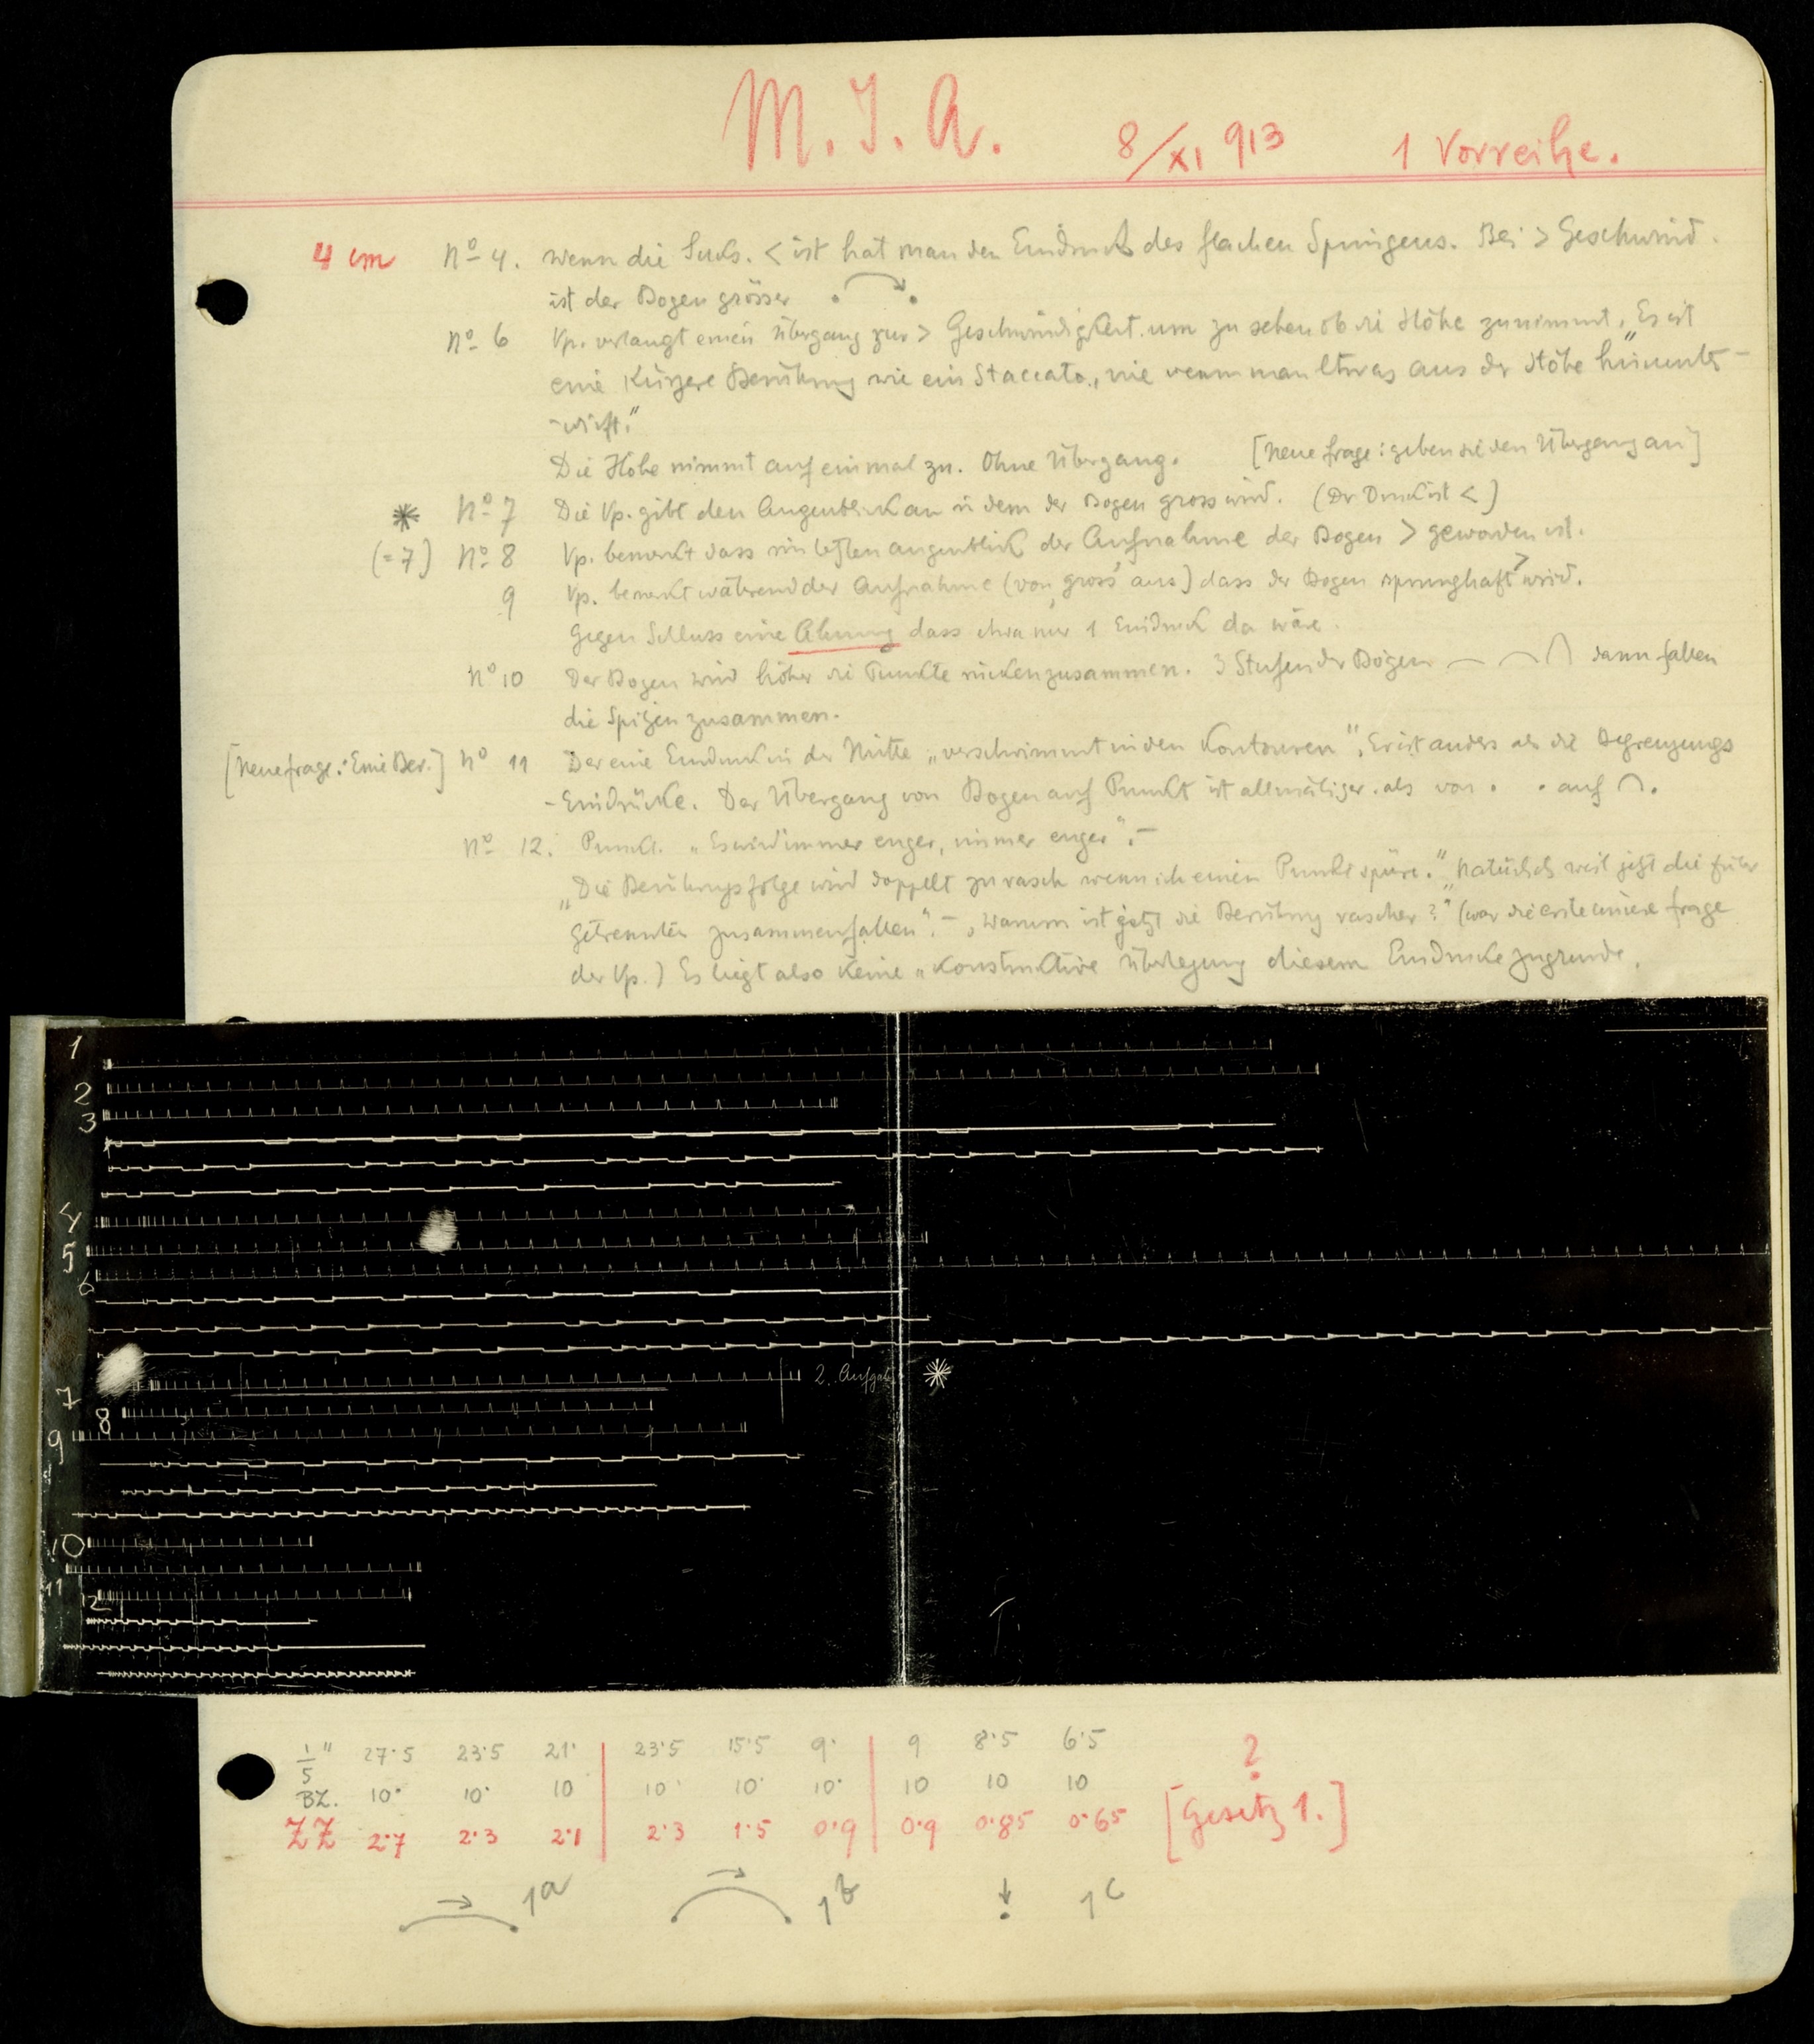 M. J. A. 8/XI 913 1 Vorreihe.
4 cm No 4. wenn die Sukz. < ist hat man den Eindruck des flachen Springens. Bei > Geschwind.
ist der Bogen grösser
No 6 Vp. verlangt einen Übergang zur > Geschwindigkeit um zu sehen ob die Höhe zunimmt. „Es ist
eine kürzere Berührung wie ein Staccato, wie wenn man etwas aus der Höhe hinunter-
-wirft."
Die Höhe nimmt auf einmal zu. Ohne Übergang. [Neue Frage: geben sie den Übergang an]
* No 7 Die Vp. gibt den Augenblick an in dem der Bogen gross wird. (Der Druck ist <)
(=7) No 8 Vp. bemerkt dass im letzten Augenblick der Aufnahme der Bogen > geworden ist.
9 Vp. bemerkt während der Aufnahme (von „gross" aus) dass der Bogen sprunghaft > wird.
Gegen Schluss eine Ahnung dass etwa nur 1 Eindruck da wäre.
No 10 Der Bogen wird höher die Punkte rücken zusammen. 3 Stufen der Bögen dann fallen
die Spitzen zusammen.
[Neue Frage: Eine Ber.] No 11 Der eine Eindruck in der Mitte „verschwimmt in den Kontouren". Er ist anders als die Begrenzungs
-Eindrücke. Der Übergang von Bogen auf Punkt ist allmäliger als von . . auf ⌒.
No 12. Punkt. „Es wird immer enger, immer enger". –
„Die Berührungsfolge wird doppelt zu rasch wenn ich einen Punkt spüre." „Natürlich weil jetzt die früher
Getrennten zusammenfallen". – „Warum ist jetzt die Berührung rascher?" (war die erste Frage
der Vp.) Es liegt also keine „konstruktive Überlegung diesem Eindrucke zugrunde.
1
2
3
4
5
6
7 2. Aufgabe *
8
9
10
11
12
1/5" 27·5 23·5 21· 23·5 15·5 9· 9 8·5 6·5 ?
BZ. 10· 10· 10 10· 10· 10· 10 10 10
ZZ 2·7 2·3 2·1 2·3 1·5 0·9 0·9 0·85 0·65 [Gesetz 1.]
1a 1b 1c